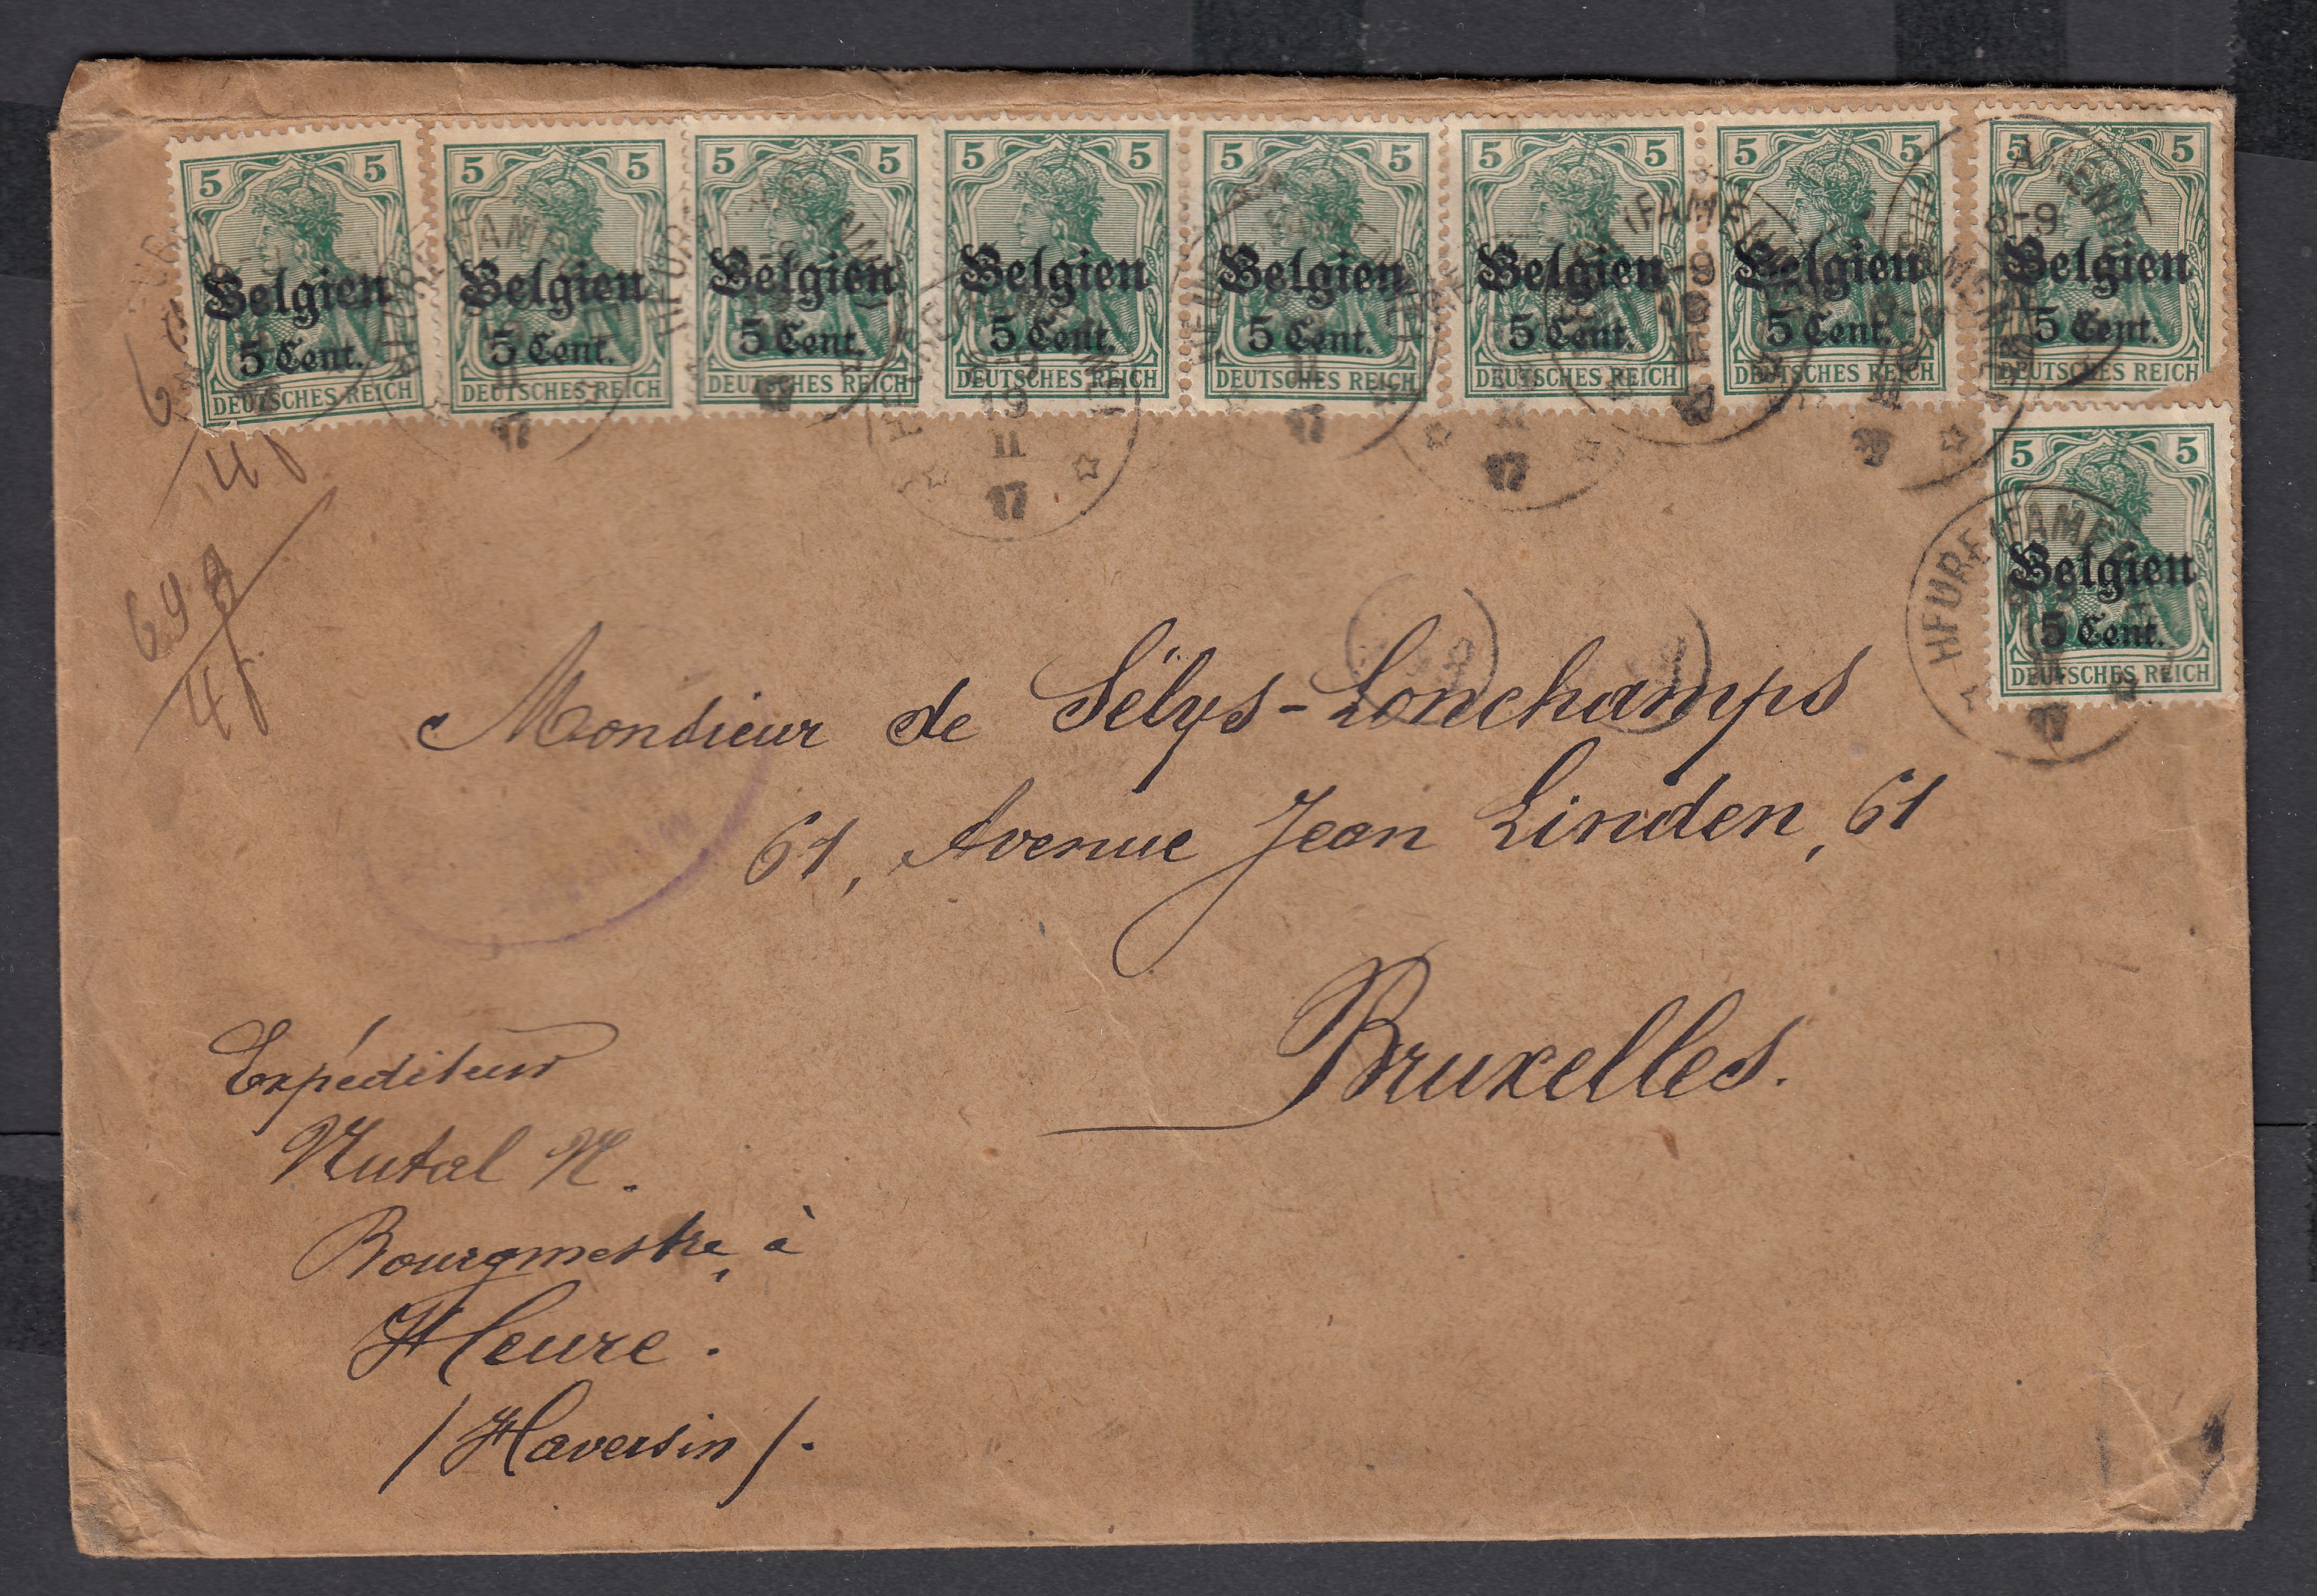 5 5 5 5 5 5 5 5 5 5 5 5 5 5 5 5
Belgien Belgien Belgien Belgien Belgien Belgien Belgien Belgien
5 Cent. 5 Cent. 5 Cent. 5 Cent. 5 Cent. 5 Cent. 5 Cent. 5 Cent.
DEUTSCHES REICH DEUTSCHES REICH DEUTSCHES REICH DEUTSCHES REICH DEUTSCHES REICH DEUTSCHES REICH DEUTSCHES REICH DEUTSCHES REICH
8-9
19
II
17
5 5
Belgien
5 Cent.
DEUTSCHES REICH
HEURE (FAMENNE)
17
Monsieur de Sélys-Lonchamps
61, Avenue Jean Linden, 61
Bruxelles.
Expéditeur
Nutal N.
Bourgmestre à
Heure.
/Haversin/.